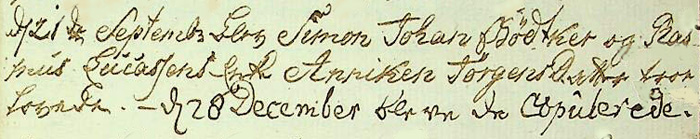 d 21 de Septembr blev Simon Johan Bödtker og Ras-
mus Lucassens Enke Anniken JörgensDatter troe
lovede. – d 28 December bleve de Copulerede.